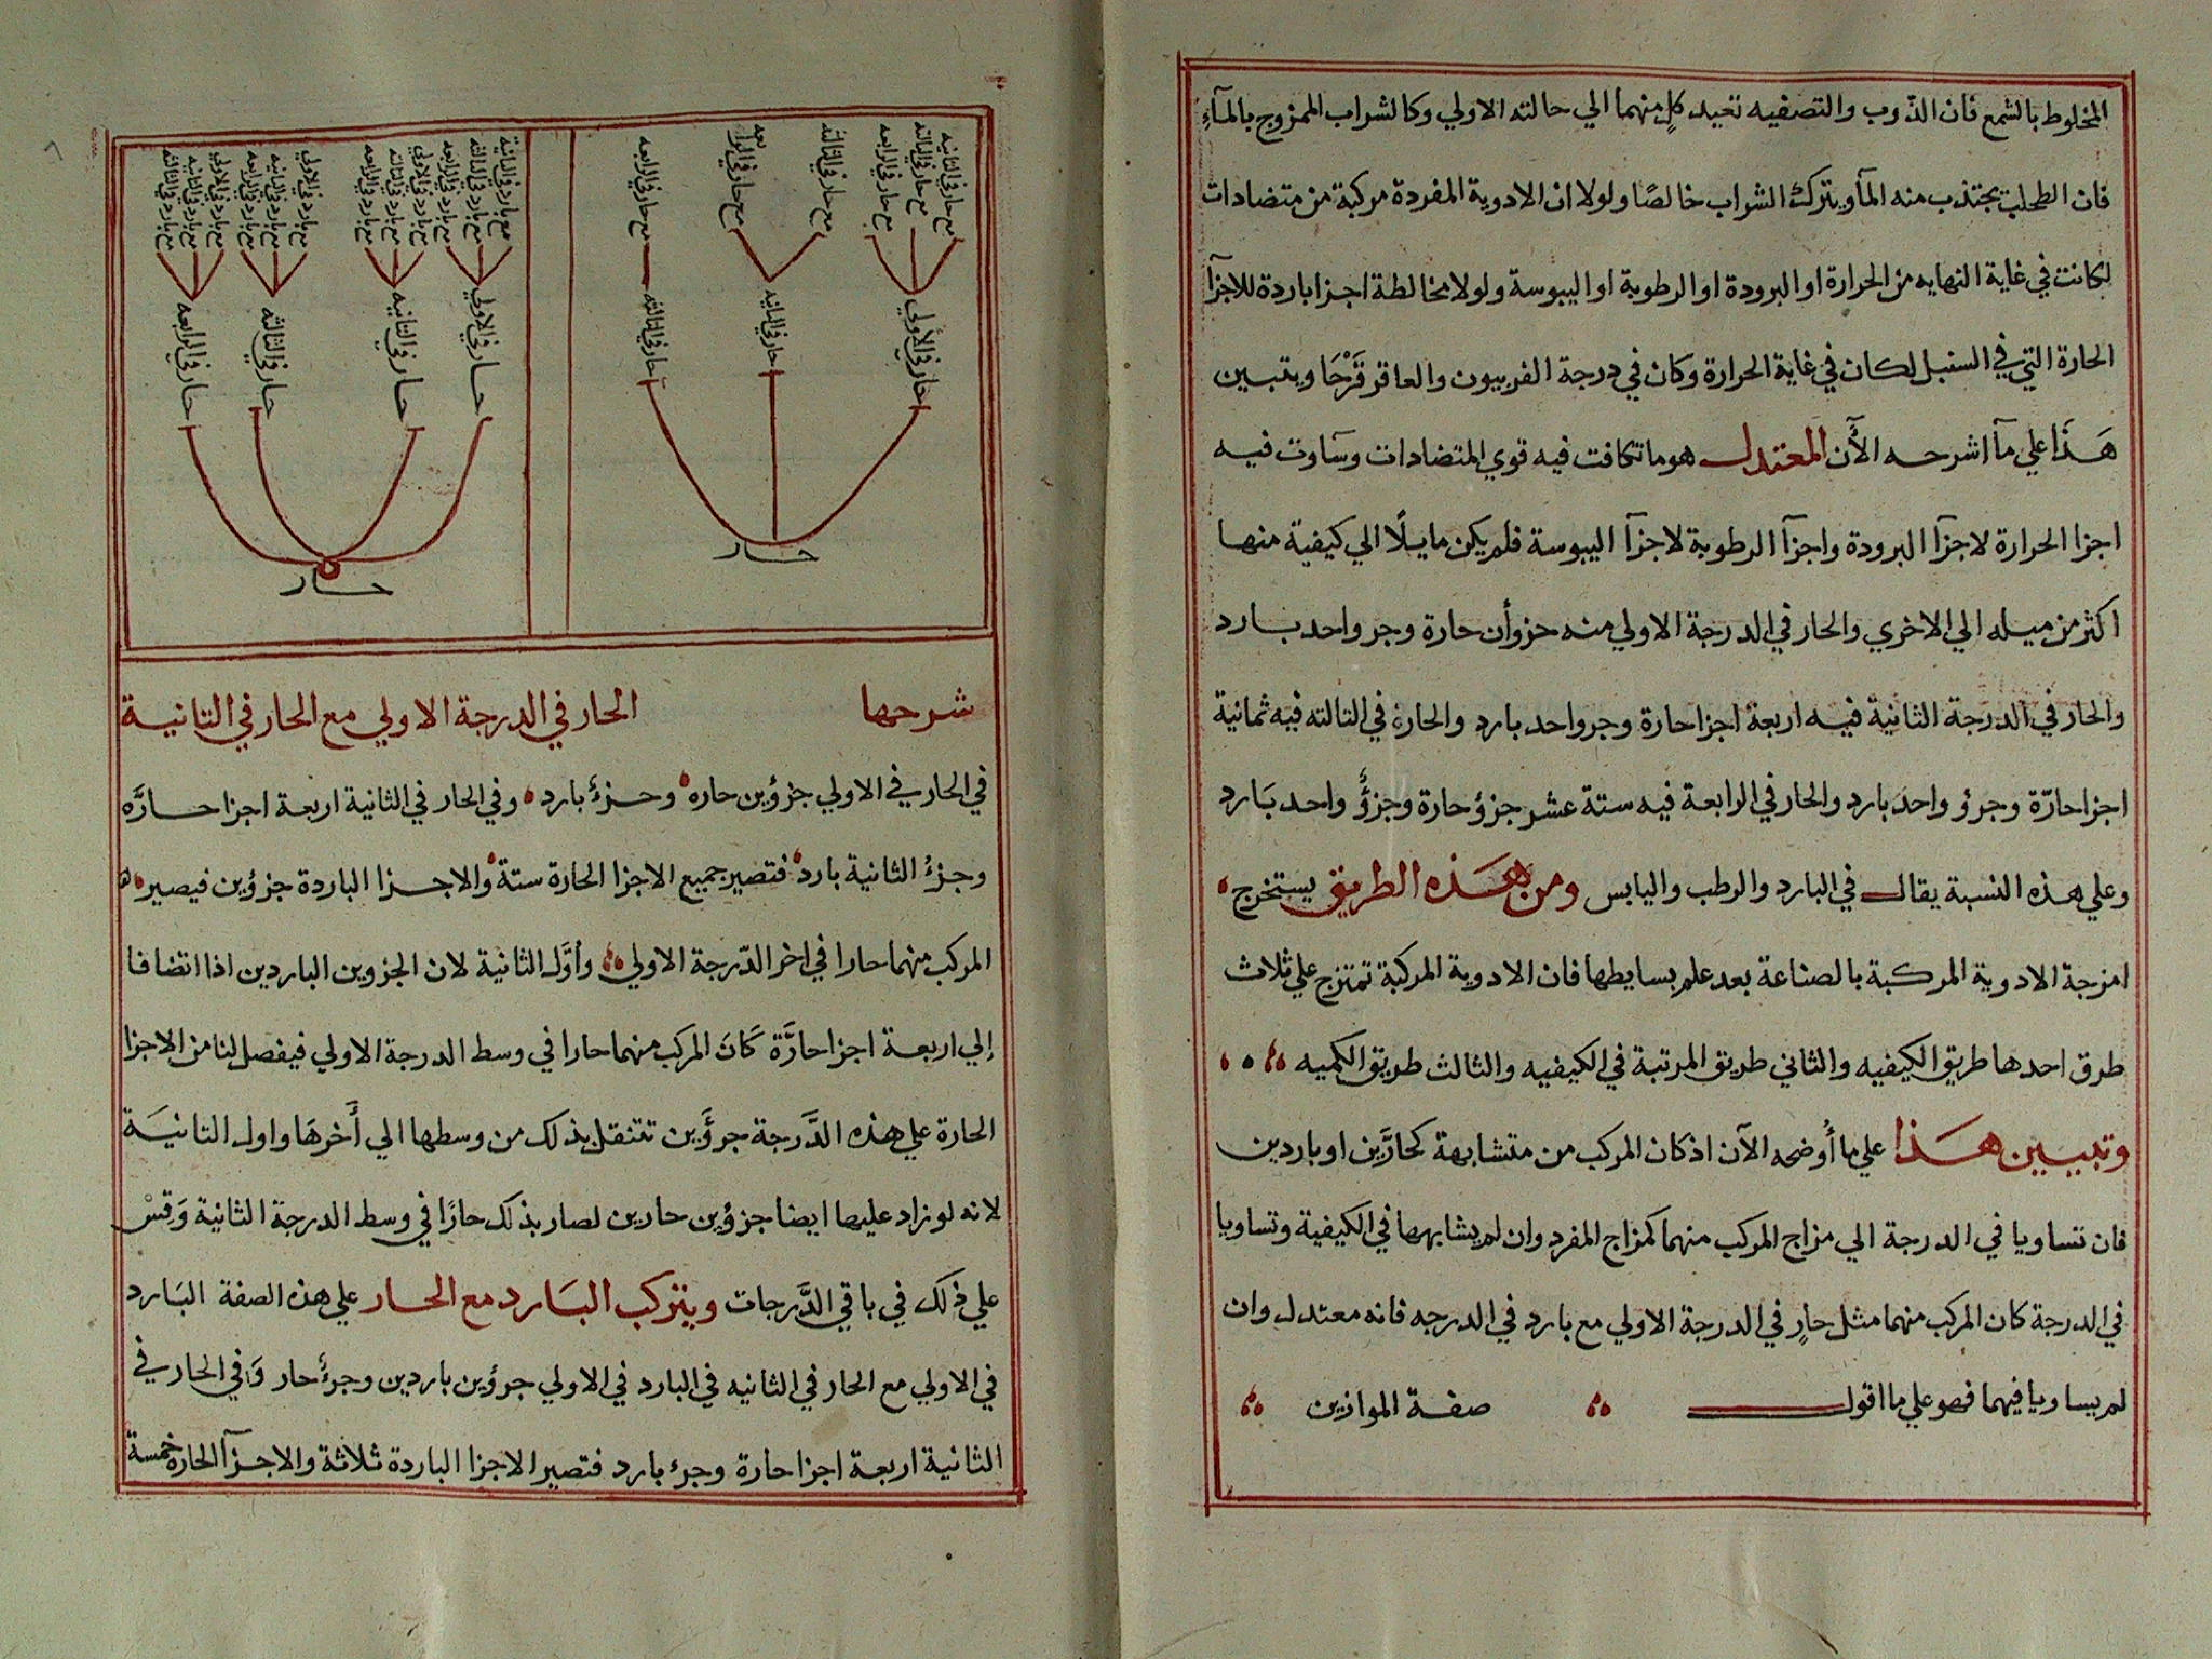 المخلوط بالشمع فان الذوب والتصفيه تعيد كل منهما الي حالته الاولي وكالشراب الممزوج بالمآءِ
فان الطحلب يجتذب منه المآ ويترك الشراب خالصًا ولولا ان الادوية المفردة مركبة من متضادات
لكانت في غاية النهايه من الحرارة او البرودة او الرطوبة او اليبوسة ولولا مخالطة اجزا باردة للاجزآ
الحارة التي في السنبل لكان في غاية الحرارة وكان في درجة الفربيون والعاقر قَرْحَا ويتبين
هَذا علي مآ اشرحه الأن المعتدل هو ما تكافت فيه قوي المتضادات وسَاوت فيه
اجزا الحرارة لاجزآ البرودة واجزآ الرطوبة لاجزآ اليبوسة فلم يكن مايلًا الي كيفية منها
اكثر من ميله الي الاخري والحار في الدرجة الاولي منه جزوأن حارة وجر واحد بارد
والحار في الدرجة الثانية فيه اربعة اجزا حارة وجر واحد بارد والحارة في الثالثه فيه ثمانية
اجزا حارّة وجرؤ واحد بارد والحار في الرابعة فيه ستة عشر جزؤ حارة وجزؤٌ واحد بَارد
وعلي هذه النسبة يقال في البارد والرطب واليابس ومن هَذه الطريق يستخرج
امزجة الادوية المركبة بالصناعة بعد علم بسايطها فان الادوية المركبة تمتزج علي ثلاث
طرق احدها طريق الكيفيه والثاني طريق المرتبة في الكيفيه والثالث طريق الكميه
وتبيين هَذا علي ما أُوضحه الآن اذ كان المركب من متشابهة كحارَّين او باردين
فان تساويا في الدرجة الي مزاج المركب منهما كمزاج المفرد وان لم يشابهها في الكيفية وتساويا
في الدرجة كان المركب منهما مثل حارٍ في الدرجة الاولي مع بارد في الدرجه فانه معتدل وان
لم يساويا فيهما فهو علي ما اقول صفة الموازين
مع حار في الثانيه
مع حار في الثالثه
مع حار في الرابعه
مع حار في الثالثه
مع حار في الرابعه
مع حار في الرابعه
حار في الأولي
حار في الثانيه
حار في الثالثه
حار
مع بارد في الثانية
مع بارد في الثالثه
مع بارد في الرابعه
مع بارد في الاولي
مع بارد في الثالثه
مع بارد في الرابعه
مع بارد في الاولي
مع بارد في الثانيه
مع بارد في الرابعه
مع بارد في الاولي
مع بارد في الثانيه
مع بارد في الثالثه
حار في الاولي
حار في الثانيه
حار في الثالثه
حار في الرابعه
حار
شرحها الحار في الدرجة الاولي مع الحار في الثانية
في الحار في الاولي جزؤين حاره وجزءُ بارد وفي الحار في الثانية اربعة اجزا حارَّه
وجزءُ الثانية بارد فتصير جميع الاجزا الحارة ستة والاجزا الباردة جزؤين فيصير
المركب منهما حارا في اخر الدّرجة الاولي وأوَّل الثانية لان الجزوين الباردين اذا اتضافا
إلي اربعة اجزا حارَّة كَانَ المركب منهما حارا في وسط الدرجة الاولي فيفصل لنا من الاجزا
الحارة علي هذه الدَّرجة جرؤَين تنتقل بذلك من وسطها الي أخرهَا واول الثانيَة
لانه لو زاد عليها ايضا جزؤين حارين لصار بذلك حارًا في وسط الدرجة الثانية وَقِسْ
علي ذلك في باقي الدَّرجات ويتركب البَارد مع الحار علي هذه الصفة البَارد
في الاولي مع الحار في الثانيه في البارد في الاولي جرؤين باردين وجرءُ حار وَفي الحار في
الثانية اربعة اجزا حارة وجرء بارد فتصير الاجزا الباردة ثلاثة والاجزآ الحارة خمسة